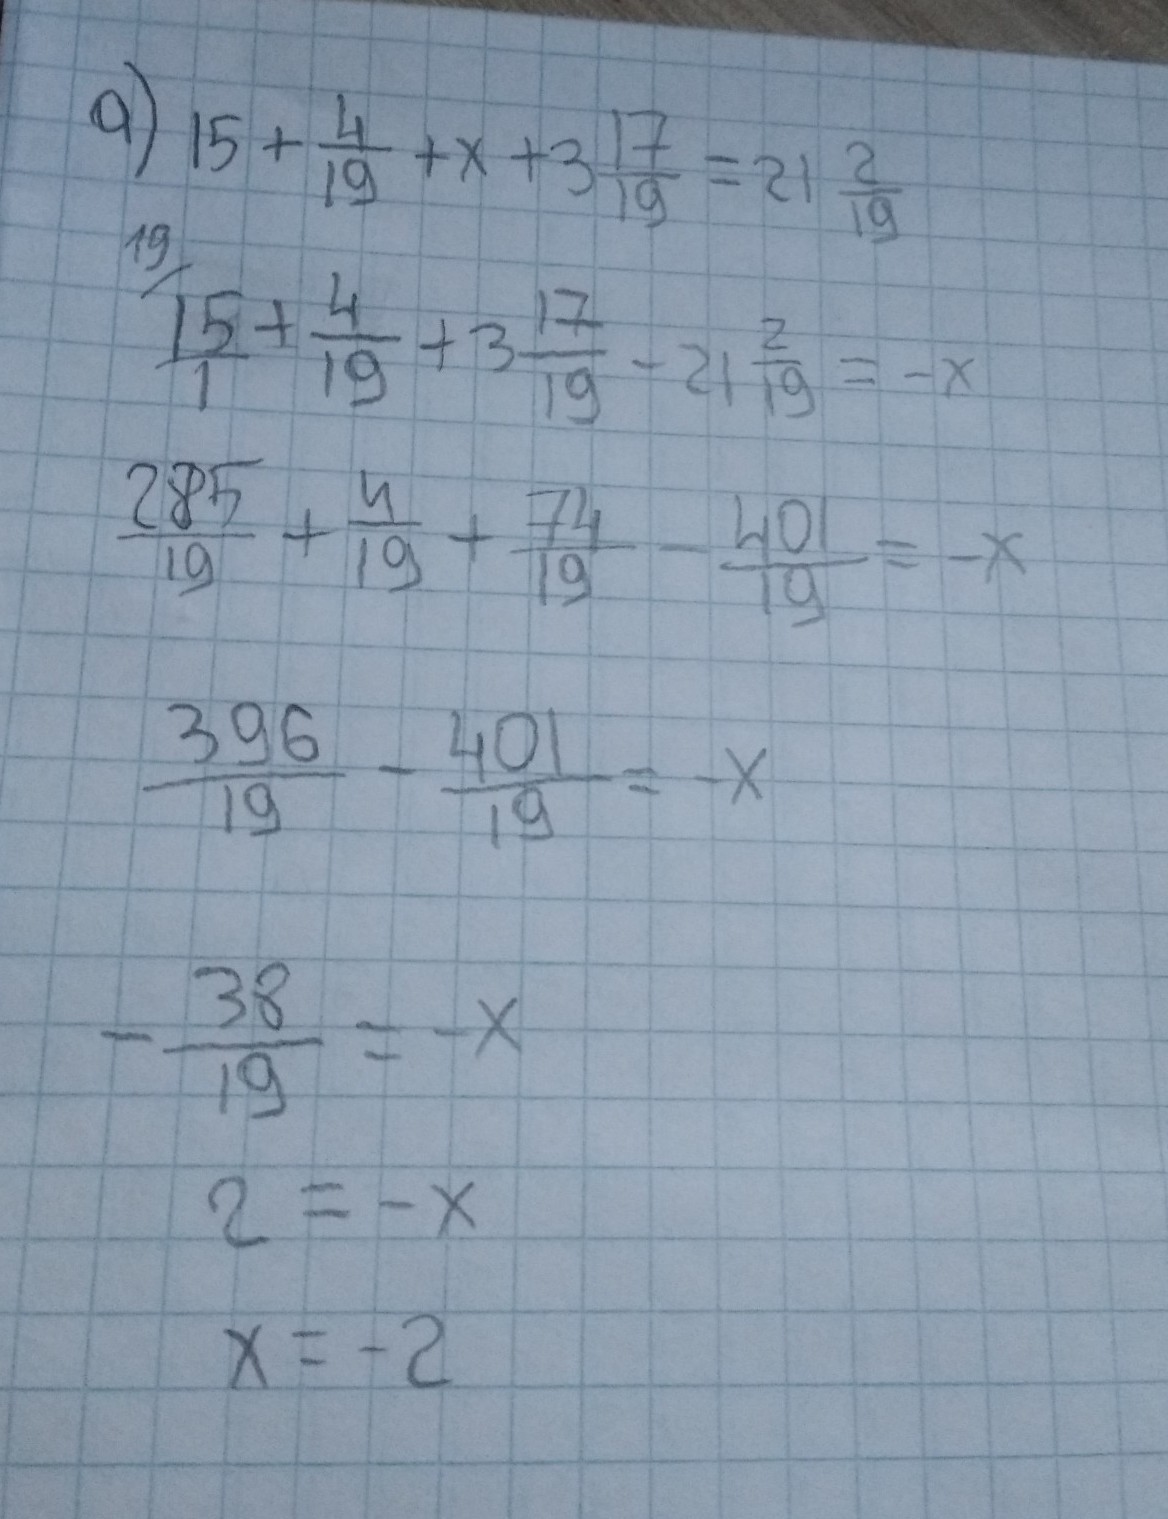 a) 15 + 4/19 + x + 3 17/19 = 21 2/19
19/ 15/1 + 4/19 + 3 17/19 - 21 2/19 = -x
285/19 + 4/19 + 74/19 - 401/19 = -x
396/19 - 401/19 = -x
- 38/19 = -x
2 = -x
x = -2